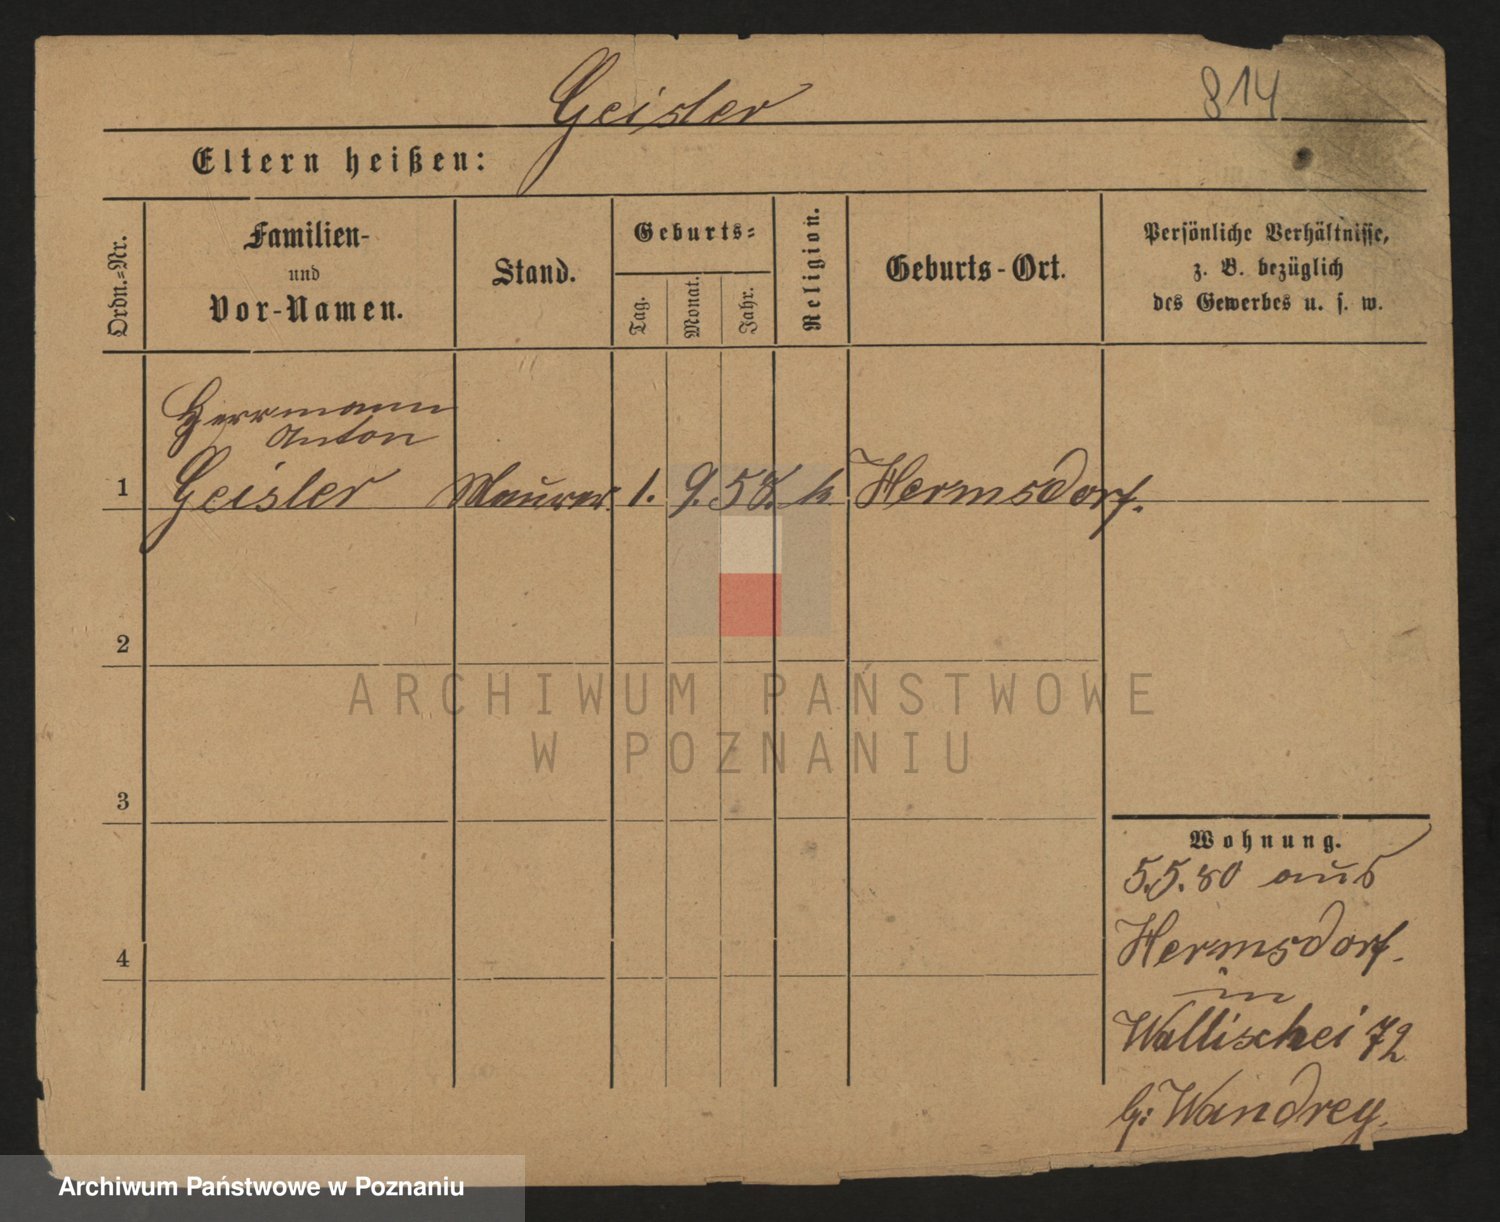 Geisler
814
Eltern heißen:
Ordn.-Nr.
Familien-
und
Vor-Namen.
Stand.
Geburts-
Tag.
Monat.
Jahr.
Religion.
Geburts-Ort.
Persönliche Verhältnisse,
z. B. bezüglich
des Gewerbes u. s. w.
Herrmann
Anton
1 Geisler Maurer 1. 9. 58. k Hermsdorf.
2
ARCHIWUM PAŃSTWOWE
W POZNANIU
3
Wohnung.
5.5.80 aus
Hermsdorf.
in
4
Wallischei 72
b: Wandrey.
Archiwum Państwowe w Poznaniu